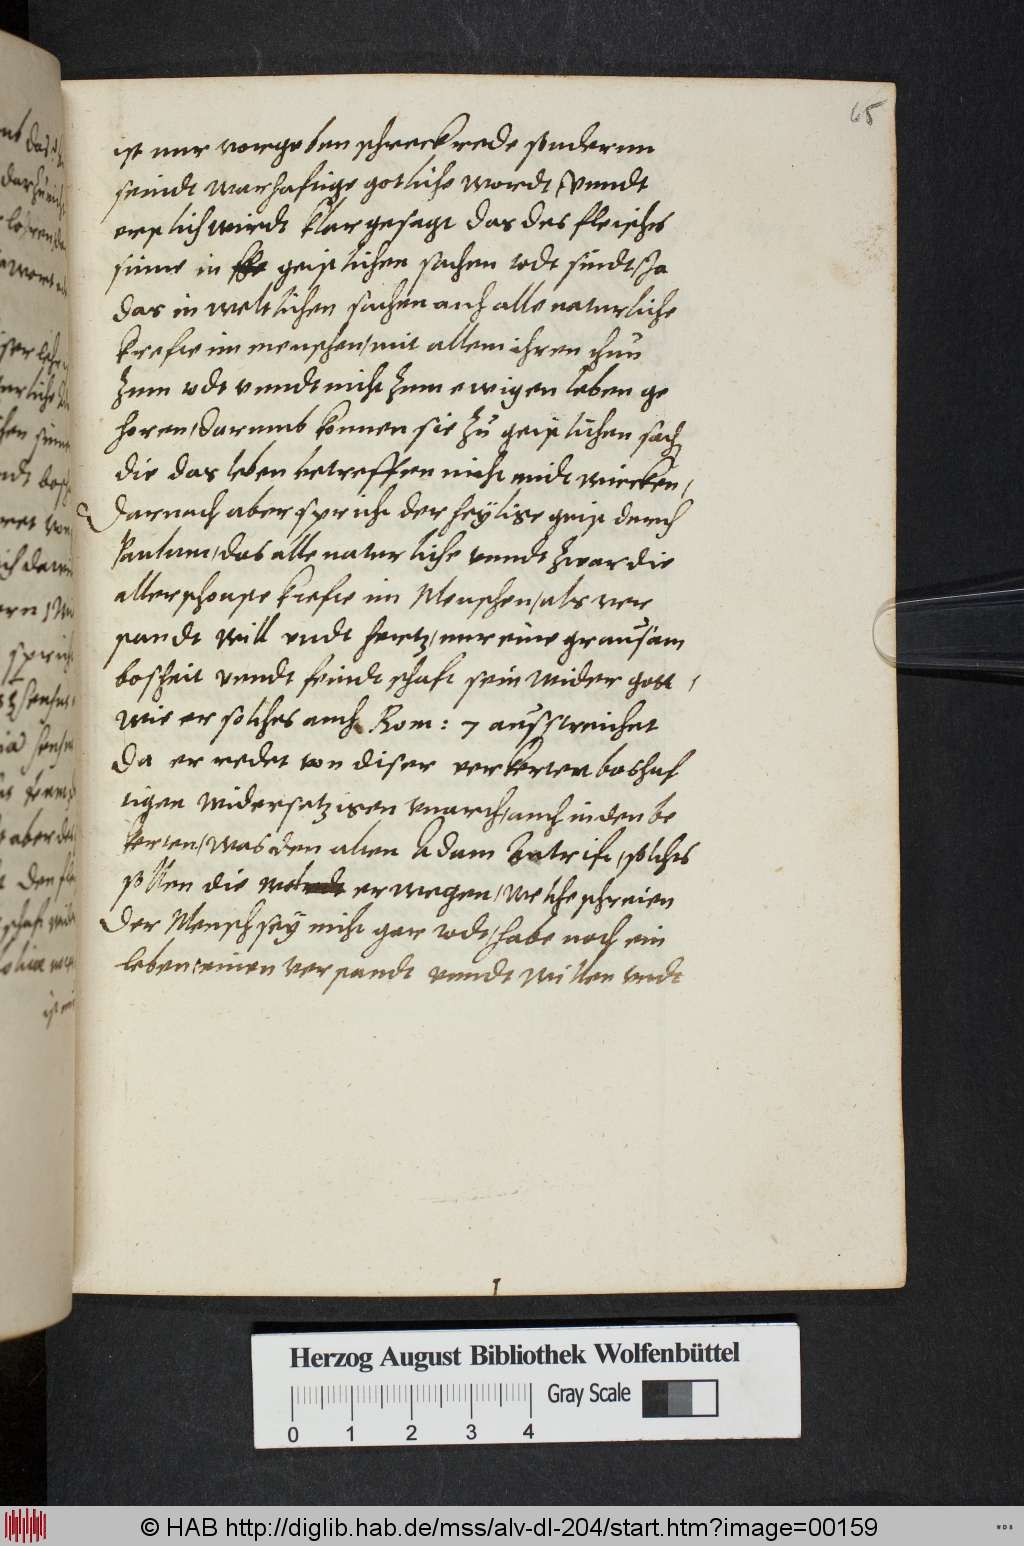 65
ist nur vorgeben schreckrede sondernn
seindt warhafftige gotliche wordt / Vnndt
erstlich wirdt klar gesagt das des fleisches
sinne in geistlichen sachen todt sindt / Ja
das in weltlichen sachen auch alle naturliche
krefte im menschen / mit allem ihren thun
zum todt vnndt nicht zum ewigen leben ge
horen / darumb konnen sie zu geistlichen sach
die das leben betreffen nicht midt wircken /
Darnach aber spricht der heÿlige geist durch
Paulum / das alle naturliche vnndt zwar die
allerschonste krefte im Menschen / als ver
standt will vndt hertz / nur eine grausam
bosheit vnndt feindtschaft sein wider gott /
wie er solches auch Rom: 7 ausstreichet
Da er redet von diser verkerten boshaf
tigen widersetzisen vnarth / auch in den be
kerten / was den alten Adam antrift / solches
sollen die erwegen / welche schreien
Der Mensch seÿ nicht gar todt / habe noch ein
leben / einen verstandt vnndt willen vndt
Herzog August Bibliothek Wolfenbüttel
0 1 2 3 4
Gray Scale
© HAB http://diglib.hab.de/mss/alv-dl-204/start.htm?image=00159